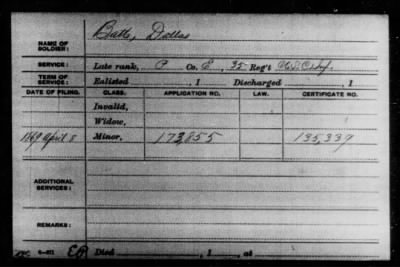 NAME OF SOLDIER: Batts, Dallas
SERVICE: Late rank, P Co. E, 35 Reg't U.S.C. Inf.
TERM OF SERVICE: Enlisted , 1 Discharged , 1
DATE OF FILING. CLASS. APPLICATION NO. LAW. CERTIFICATE NO.
Invalid,
Widow,
1869 April 8 Minor, 173,855 135,339
ADDITIONAL SERVICES:
REMARKS:
Died , 1 , at